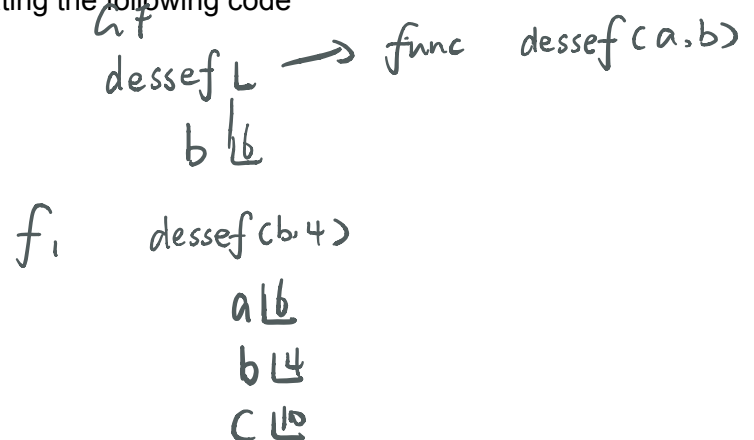 ting the following code
dessef func dessef(a,b)
b 6
f1 dessef(b,4)
a 6
b 4
c 10